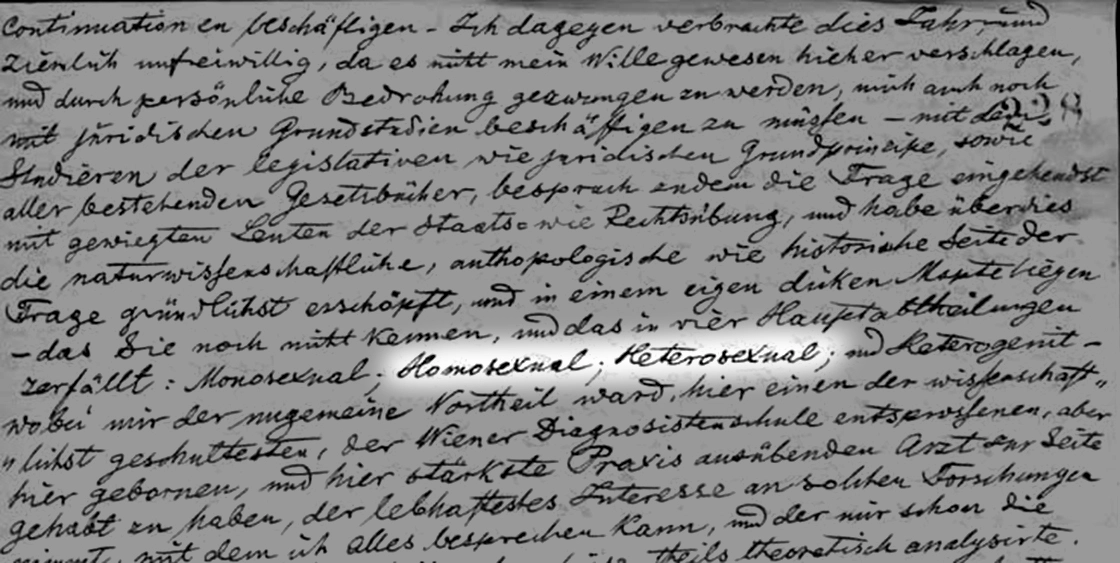 Continuationen beschäftigen - Ich dagegen verbrachte dies Jahr, und
zienlich unfreiwillig, da es nicht mein Wille gewesen hieher verschlagen,
und durch persönliche Bedrohung gezwungen zu werden, mich auch noch
mit juridischen Grundstudien beschäftigen zu müssen - mit dem
Studieren der legislativen wie juridischen Grundprincipe, sowie
aller bestehenden Gesetzbücher, besprach zudem die Frage eingehendst
mit gewiegten Leuten der Staats= wie Rechtsübung, und habe überdies
die naturwissenschaftliche, anthopologische wie historische Seite der
Frage gründlichst erschöpft, und in einem eigen dicken Mspte liegen
- das Sie noch nicht kennen, und das in vier Hauptabtheilungen
zerfällt: Monosexual; Homosexual; Heterosexual; und Heterogenit -
wobei mir der ungemeine Vortheil ward, hier einen der wissenschaft„
„lichst geschultesten, der Wiener Diagnosistenschule entsprossenen, aber
hier gebornen, und hier stärkste Praxis ausübenden Arzt zur Seite
gehabt zu haben, der lebhaftestes Interesse an solchen Forschungen
nimmt, mit dem ich alles besprechen kann, und der mir schon die
theils theoretisch analysirte.